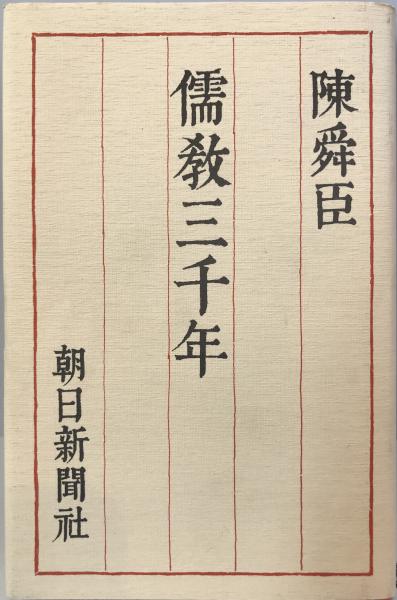 陳舜臣
儒教三千年
朝日新聞社